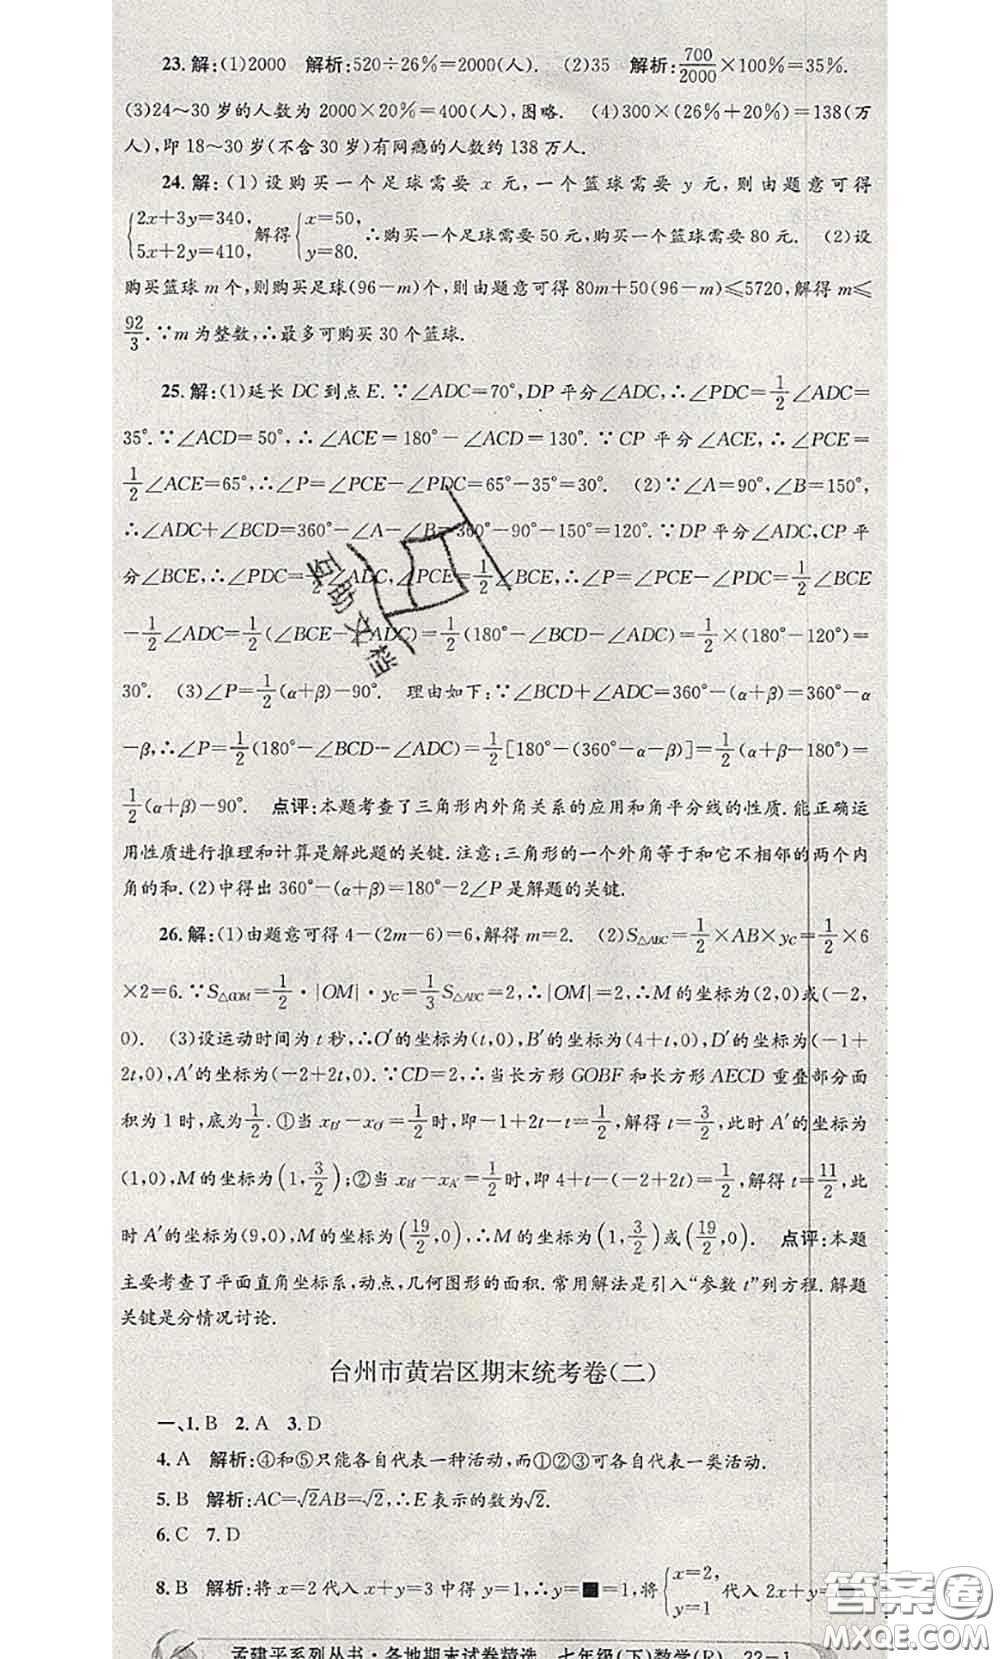 23.解:(1)2000 解析:520÷26%=2000(人). (2)35 解析:700/2000×100%=35%.
(3)24~30岁的人数为2000×20%=400(人),图略. (4)300×(26%+20%)=138(万
人),即18~30岁(不含30岁)有网瘾的人数约138万人.
24.解:(1)设购买一个足球需要x元,一个篮球需要y元,则由题意可得
{2x+3y=340, 5x+2y=410, 解得{x=50, y=80. ∴购买一个足球需要50元,购买一个篮球需要80元. (2)设
购买篮球m个,则购买足球(96-m)个,则由题意可得80m+50(96-m)≤5720,解得m≤
92/3.∵m为整数,∴最多可购买30个篮球.
25.解:(1)延长DC到点E.∵∠ADC=70°,DP平分∠ADC,∴∠PDC=1/2∠ADC=
35°.∵∠ACD=50°,∴∠ACE=180°-∠ACD=130°.∵CP平分∠ACE,∴∠PCE=
1/2∠ACE=65°,∴∠P=∠PCE-∠PDC=65°-35°=30°. (2)∵∠A=90°,∠B=150°,
∴∠ADC+∠BCD=360°-∠A-∠B=360°-90°-150°=120°.∵DP平分∠ADC,CP平
分∠BCE,∴∠PDC=1/2∠ADC,∠PCE=1/2∠BCE,∴∠P=∠PCE-∠PDC=1/2∠BCE
-1/2∠ADC=1/2(∠BCE-∠ADC)=1/2(180°-∠BCD-∠ADC)=1/2×(180°-120°)=
30°. (3)∠P=1/2(α+β)-90°. 理由如下:∵∠BCD+∠ADC=360°-(α+β)=360°-α
-β,∴∠P=1/2(180°-∠BCD-∠ADC)=1/2[180°-(360°-α-β)]=1/2(α+β-180°)=
1/2(α+β)-90°. 点评:本题考查了三角形内外角关系的应用和角平分线的性质.能正确运
用性质进行推理和计算是解此题的关键.注意:三角形的一个外角等于和它不相邻的两个内
角的和.(2)中得出360°-(α+β)=180°-2∠P是解题的关键.
26.解:(1)由题意可得4-(2m-6)=6,解得m=2. (2)S△ABC=1/2×AB×yC=1/2×6
×2=6.∵S△COM=1/2·|OM|·yC=1/3S△ABC=2,∴|OM|=2,∴M的坐标为(2,0)或(-2,
0). (3)设运动时间为t秒,∴O′的坐标为(t,0),B′的坐标为(4+t,0),D′的坐标为(-1+
2t,0),A′的坐标为(-2+2t,0).∵CD=2,∴当长方形GOBF和长方形AECD重叠部分面
积为1时,底为1/2.①当xD′-xO′=1/2时,即-1+2t-t=1/2,解得t=3/2,此时A′的坐标为
(1,0),M的坐标为(1,3/2);②当xB′-xA′=1/2时,即4+t-(-2+2t)=1/2,解得t=11/2,此
时A′的坐标为(9,0),M的坐标为(19/2,0),∴M的坐标为(1,3/2)或(19/2,0). 点评:本题
主要考查了平面直角坐标系,动点,几何图形的面积.常用解法是引入“参数t”列方程.解题
关键是分情况讨论.
台州市黄岩区期末统考卷(二)
一、1.B 2.A 3.D
4.A 解析:④和⑤只能各自代表一种活动,而①②③可各自代表一类活动.
5.B 解析:AC=√2AB=√2,∴E表示的数为√2.
6.C 7.D
8.B 解析:将x=2代入x+y=3中得y=1,∴■=1,将{x=2, y=1 代入2x+y=
孟建平系列丛书·各地期末试卷精选 七年级(下)数学(R) 22-1
互助文档
答案圈